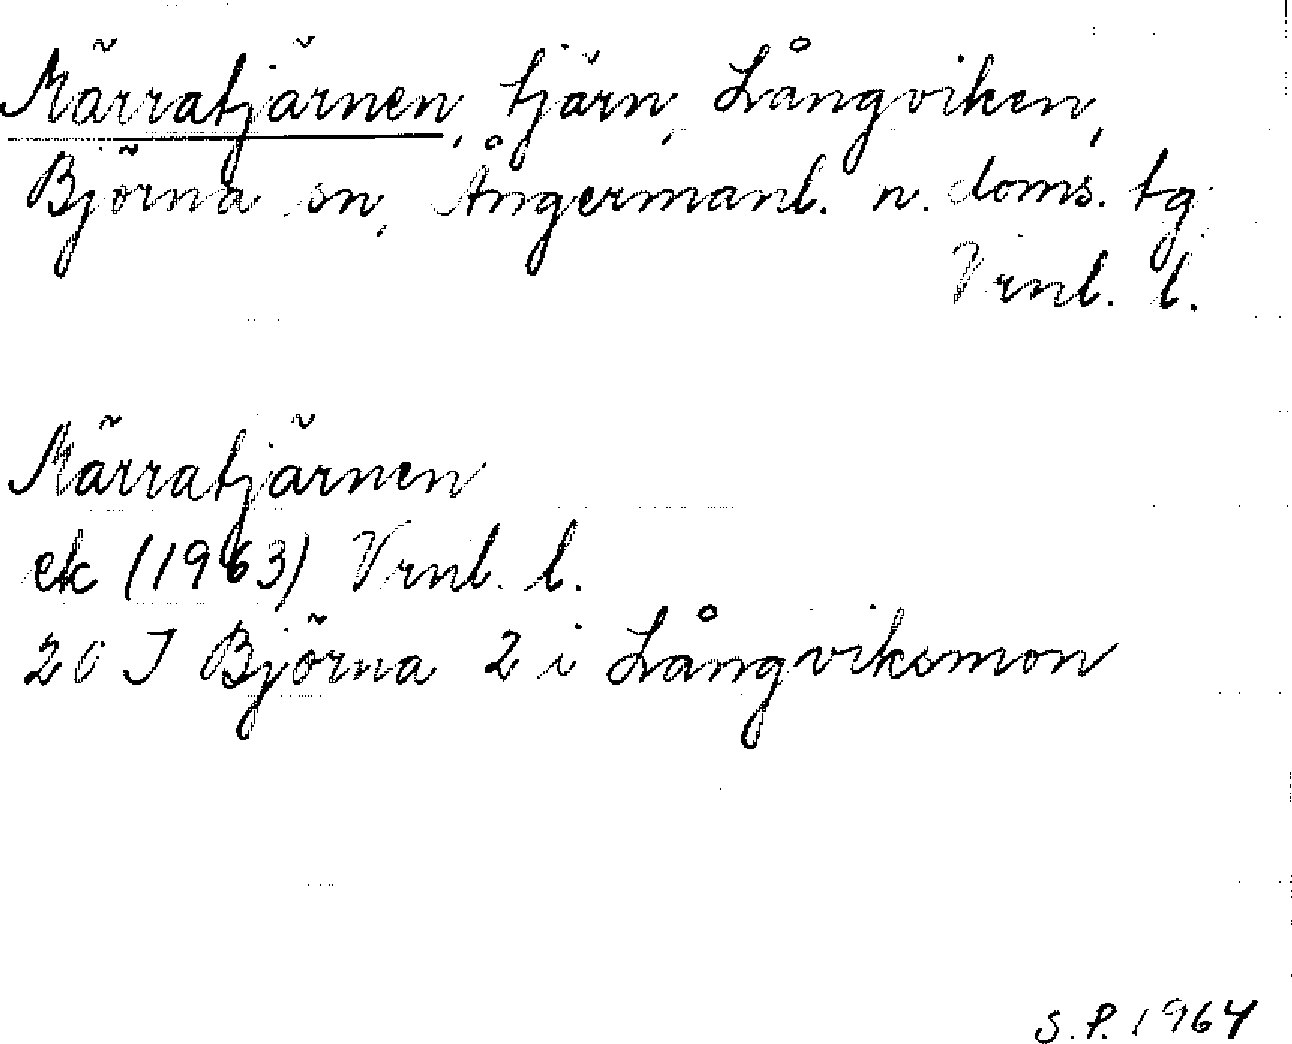 Märratjärnen, tjärn, Långviken,
Björna sn, Ångermanl. n. doms. tg
Vrnl. l.
Märratjärnen
ek (1963) Vrnl. l.
20 J Björna 2 i Långviksmon
S.P. 1964